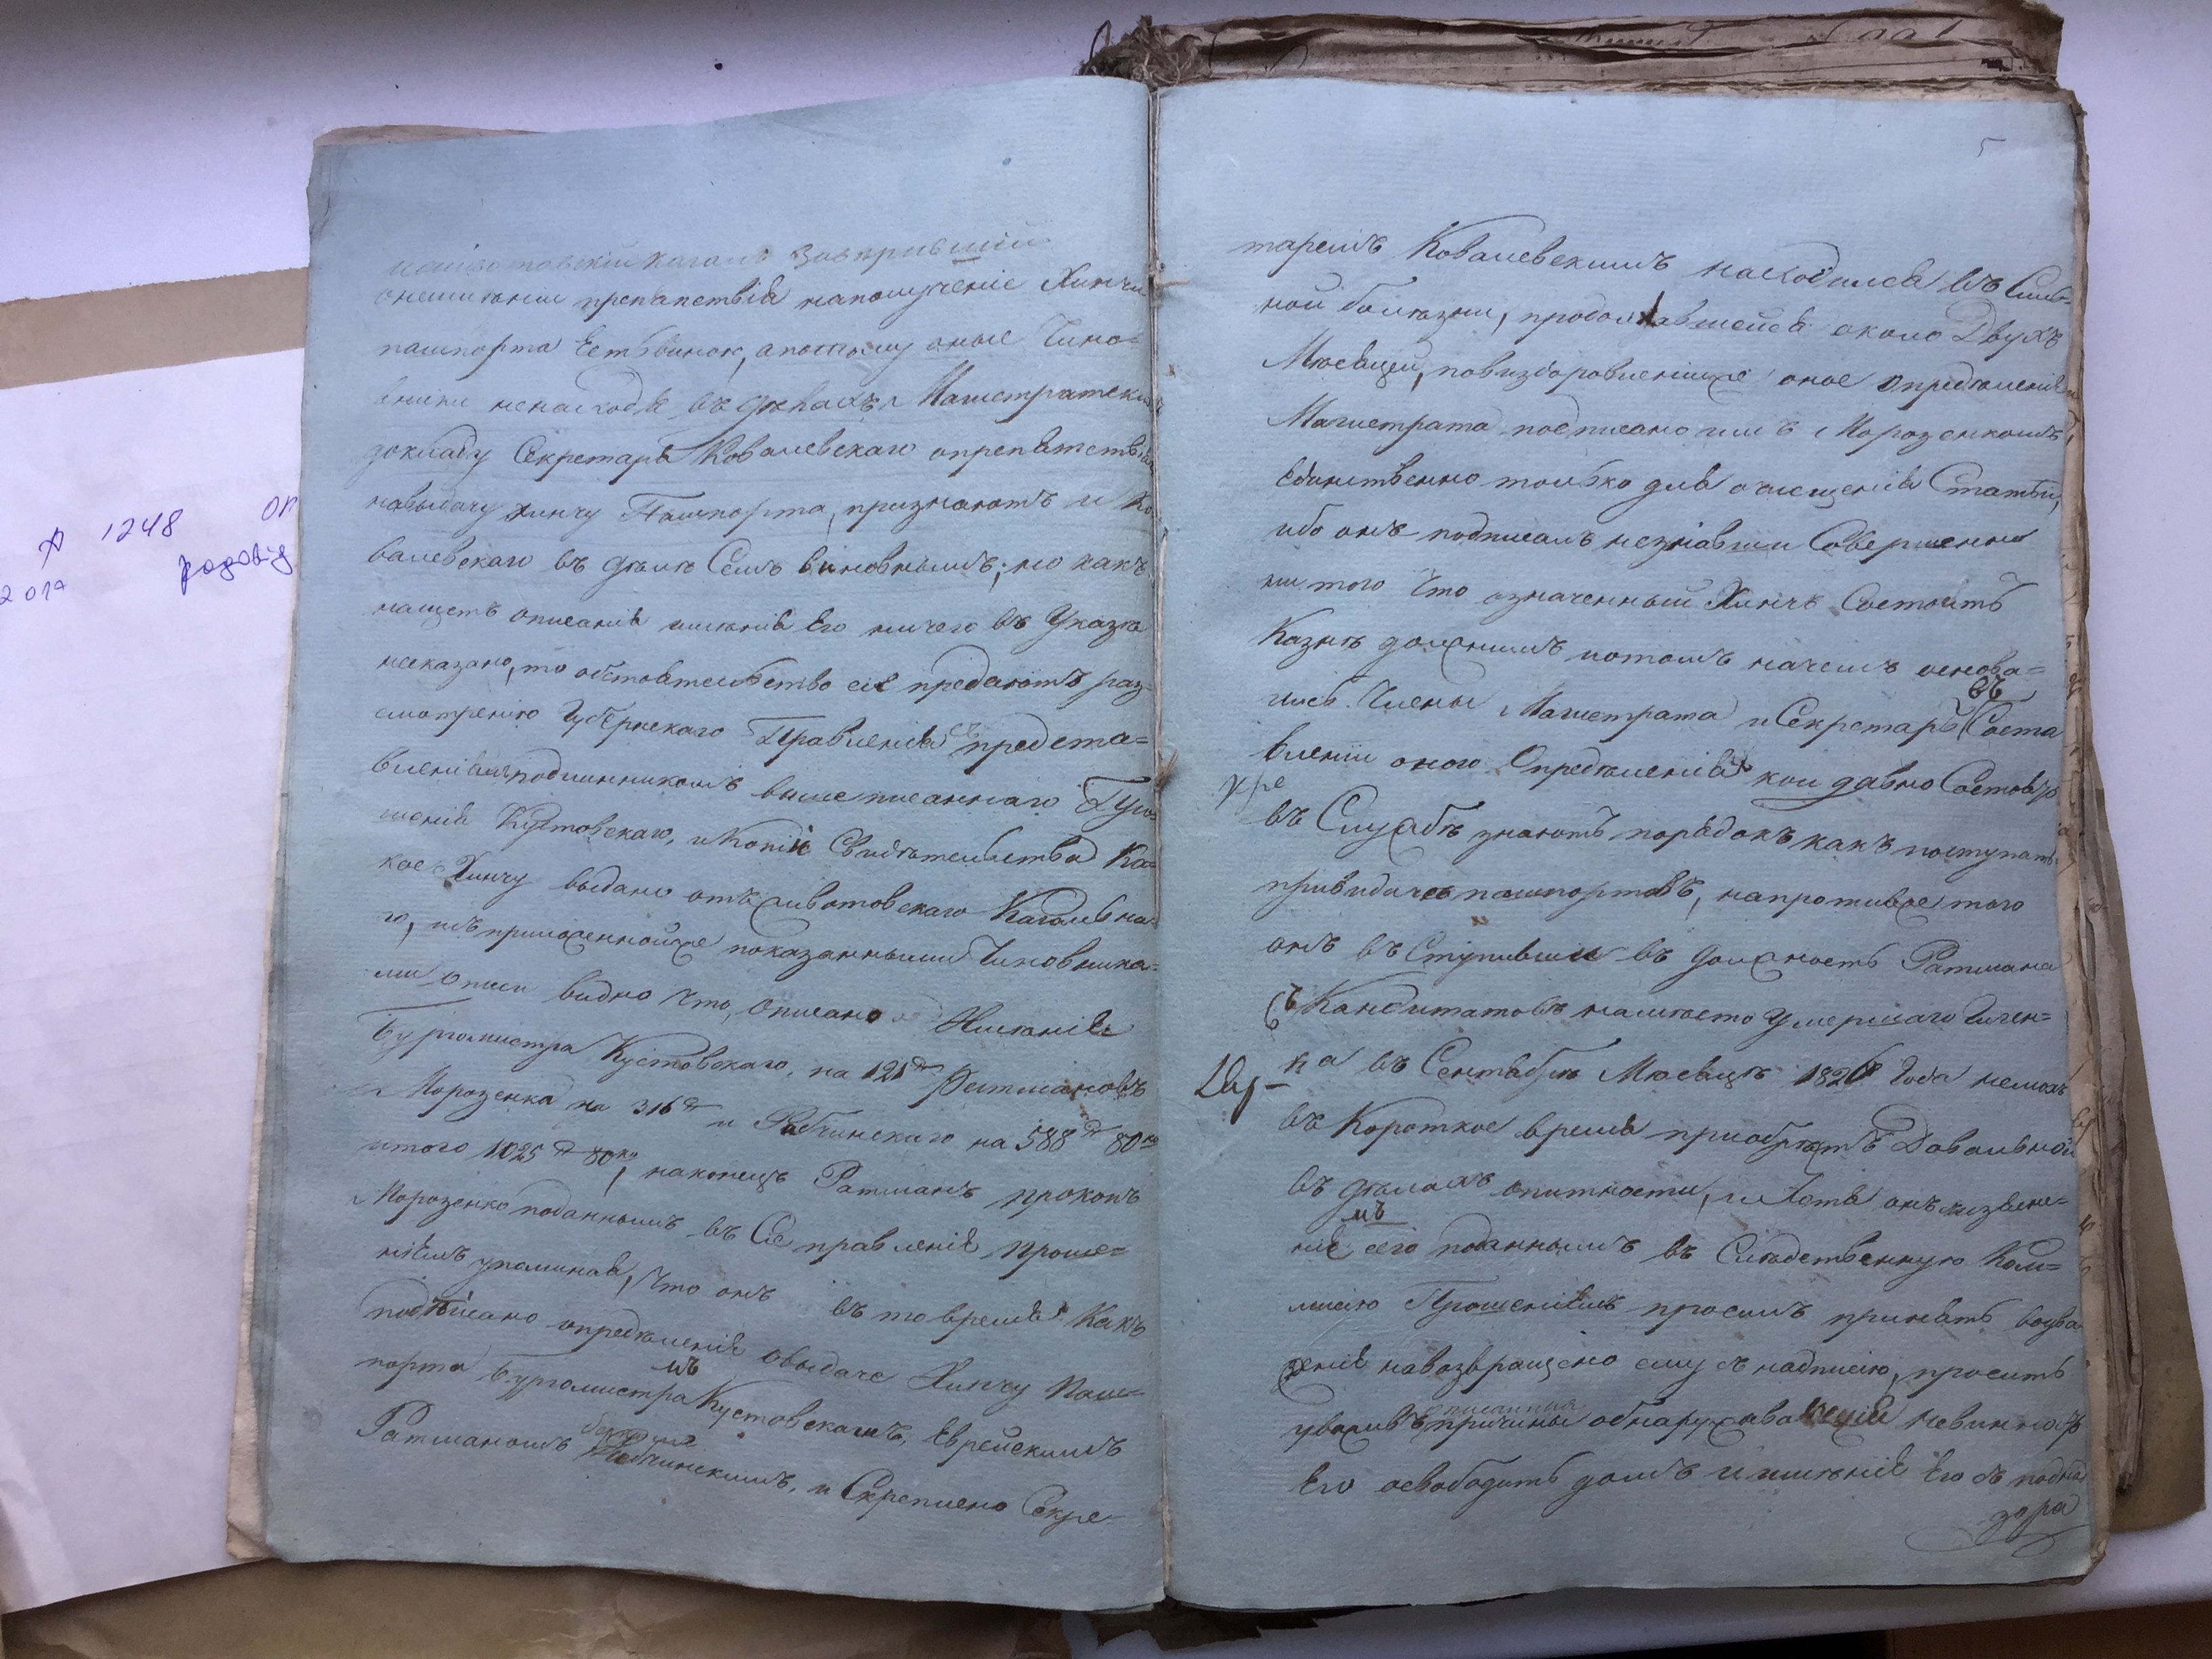 1248
2017
родовід
кагалъ завѣрившій
препятствія наполученіе Хинчи
пашпорта Естьвиною, апотому оные Чино=
вники ненаходя въ дѣлахъ Магистратски
докладу Секретаря Ковалевскаго опрепятствіи
навыдачу хинчу Пашпорта, признаютъ и Ко
валевскаго въ дѣлѣ Семъ виновнымъ; но какъ
нащетъ описанія имѣнія Его ничего въ Указѣ
несказано, то обстоятельство сіе предаютъ раз=
смотренію Губернскаго Правленія съ предста=
вленіемъ подлинникомъ выше писаннаго Гула
шенія Кустовскаго, икопіи Свидѣтельства Ка=
кое Хинчу выдано отъ Животовскаго Кагала на
го, изъ приложеннойже показанными Чиновника=
ми описи видно что, описано Имѣнія
Бургомистра Кустовскаго, на 121 Ратмановъ
Морозенка на 316 и Рабчинскаго на 588 80
итого 1025 80, наконецъ Ратманъ прокопъ
Морозенко поданнымъ въ Сіе правленіе проше=
ніемъ упоминая, что онъ въ то время Какъ
подписано опредѣленіе овыдаче Хинчу Паш=
порта Бургомистрамъ Кустовскимъ, Еврейскимъ
Ратманомъ Рабчинскимъ, и Скреплено Секре=
5
таремъ Ковалевскимъ находился въ Силь=
ной болѣзни, продолжавшейся около Двухъ
Мѣсяцей, повыздоровленіиже оное опредѣленіе
Магистрата подписано имъ Морозенкомъ
Единственно только для очищенія Статьи,
ибо онъ подписалъ незнавши Совершенно
ни того что означенный Хинчъ Состоитъ
Казнѣ должнымъ ипотомъ начемъ основа=
лись Члены Магистрата и Секретарь въ Соста
вленіи оного Опредѣленія кои давно Состоя
въ Службѣ знаютъ порядокъ какъ поступать
привидаче пашпортовъ, напротивже того
онъ въ Ступивши въ должность Ратмана
съ Кандитатовъ наместо Умершаго Член=
на въ Сентябрѣ Мѣсяцѣ 1820 Года немогъ
въ Короткое время приобрѣсть Довольной
въ дѣлахъ опитности, и хотя онъ изъясне=
ніемъ сего поданнымъ въ Слѣдственную Ком=
мисію Прошеніемъ просилъ принять воува
женіе навозвращено ему съ надписію, проситъ
уваживъ описанныя причины обнаруживающія невинность
Его освободить домъ и имѣніе Его съ подна
зора